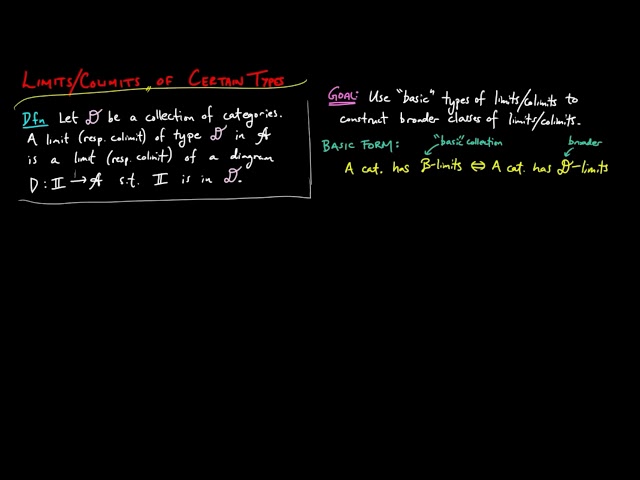 LIMITS/COLIMITS OF CERTAIN TYPES
Dfn Let 𝒟 be a collection of categories.
A limit (resp. colimit) of type 𝒟 in 𝒜
is a limit (resp. colimit) of a diagram
D : 𝕀 → 𝒜 s.t. 𝕀 is in 𝒟.
GOAL: Use "basic" types of limits/colimits to
construct broader classes of limits/colimits.
BASIC FORM: "basic" collection broader
A cat. has B-limits ⇔ A cat. has 𝒟-limits